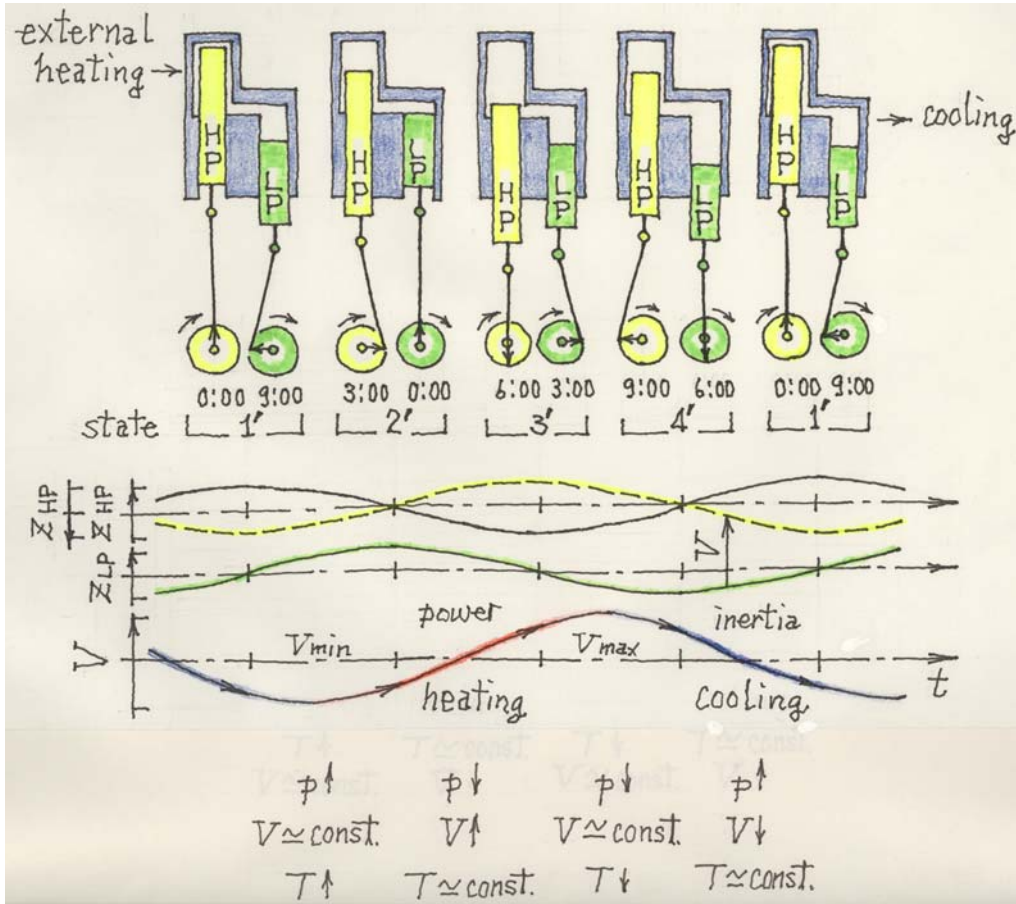 external
heating
cooling
HP LP HP LP HP LP HP LP HP LP
0:00 9:00 3:00 0:00 6:00 3:00 9:00 6:00 0:00 9:00
state 1' 2' 3' 4' 1'
Z HP Z HP
V
Z LP
power inertia
V Vmin Vmax
t
heating cooling
p↑ p↓ p↓ p↑
V≃const. V↑ V≃const. V↓
T↑ T≃const. T↓ T≃const.